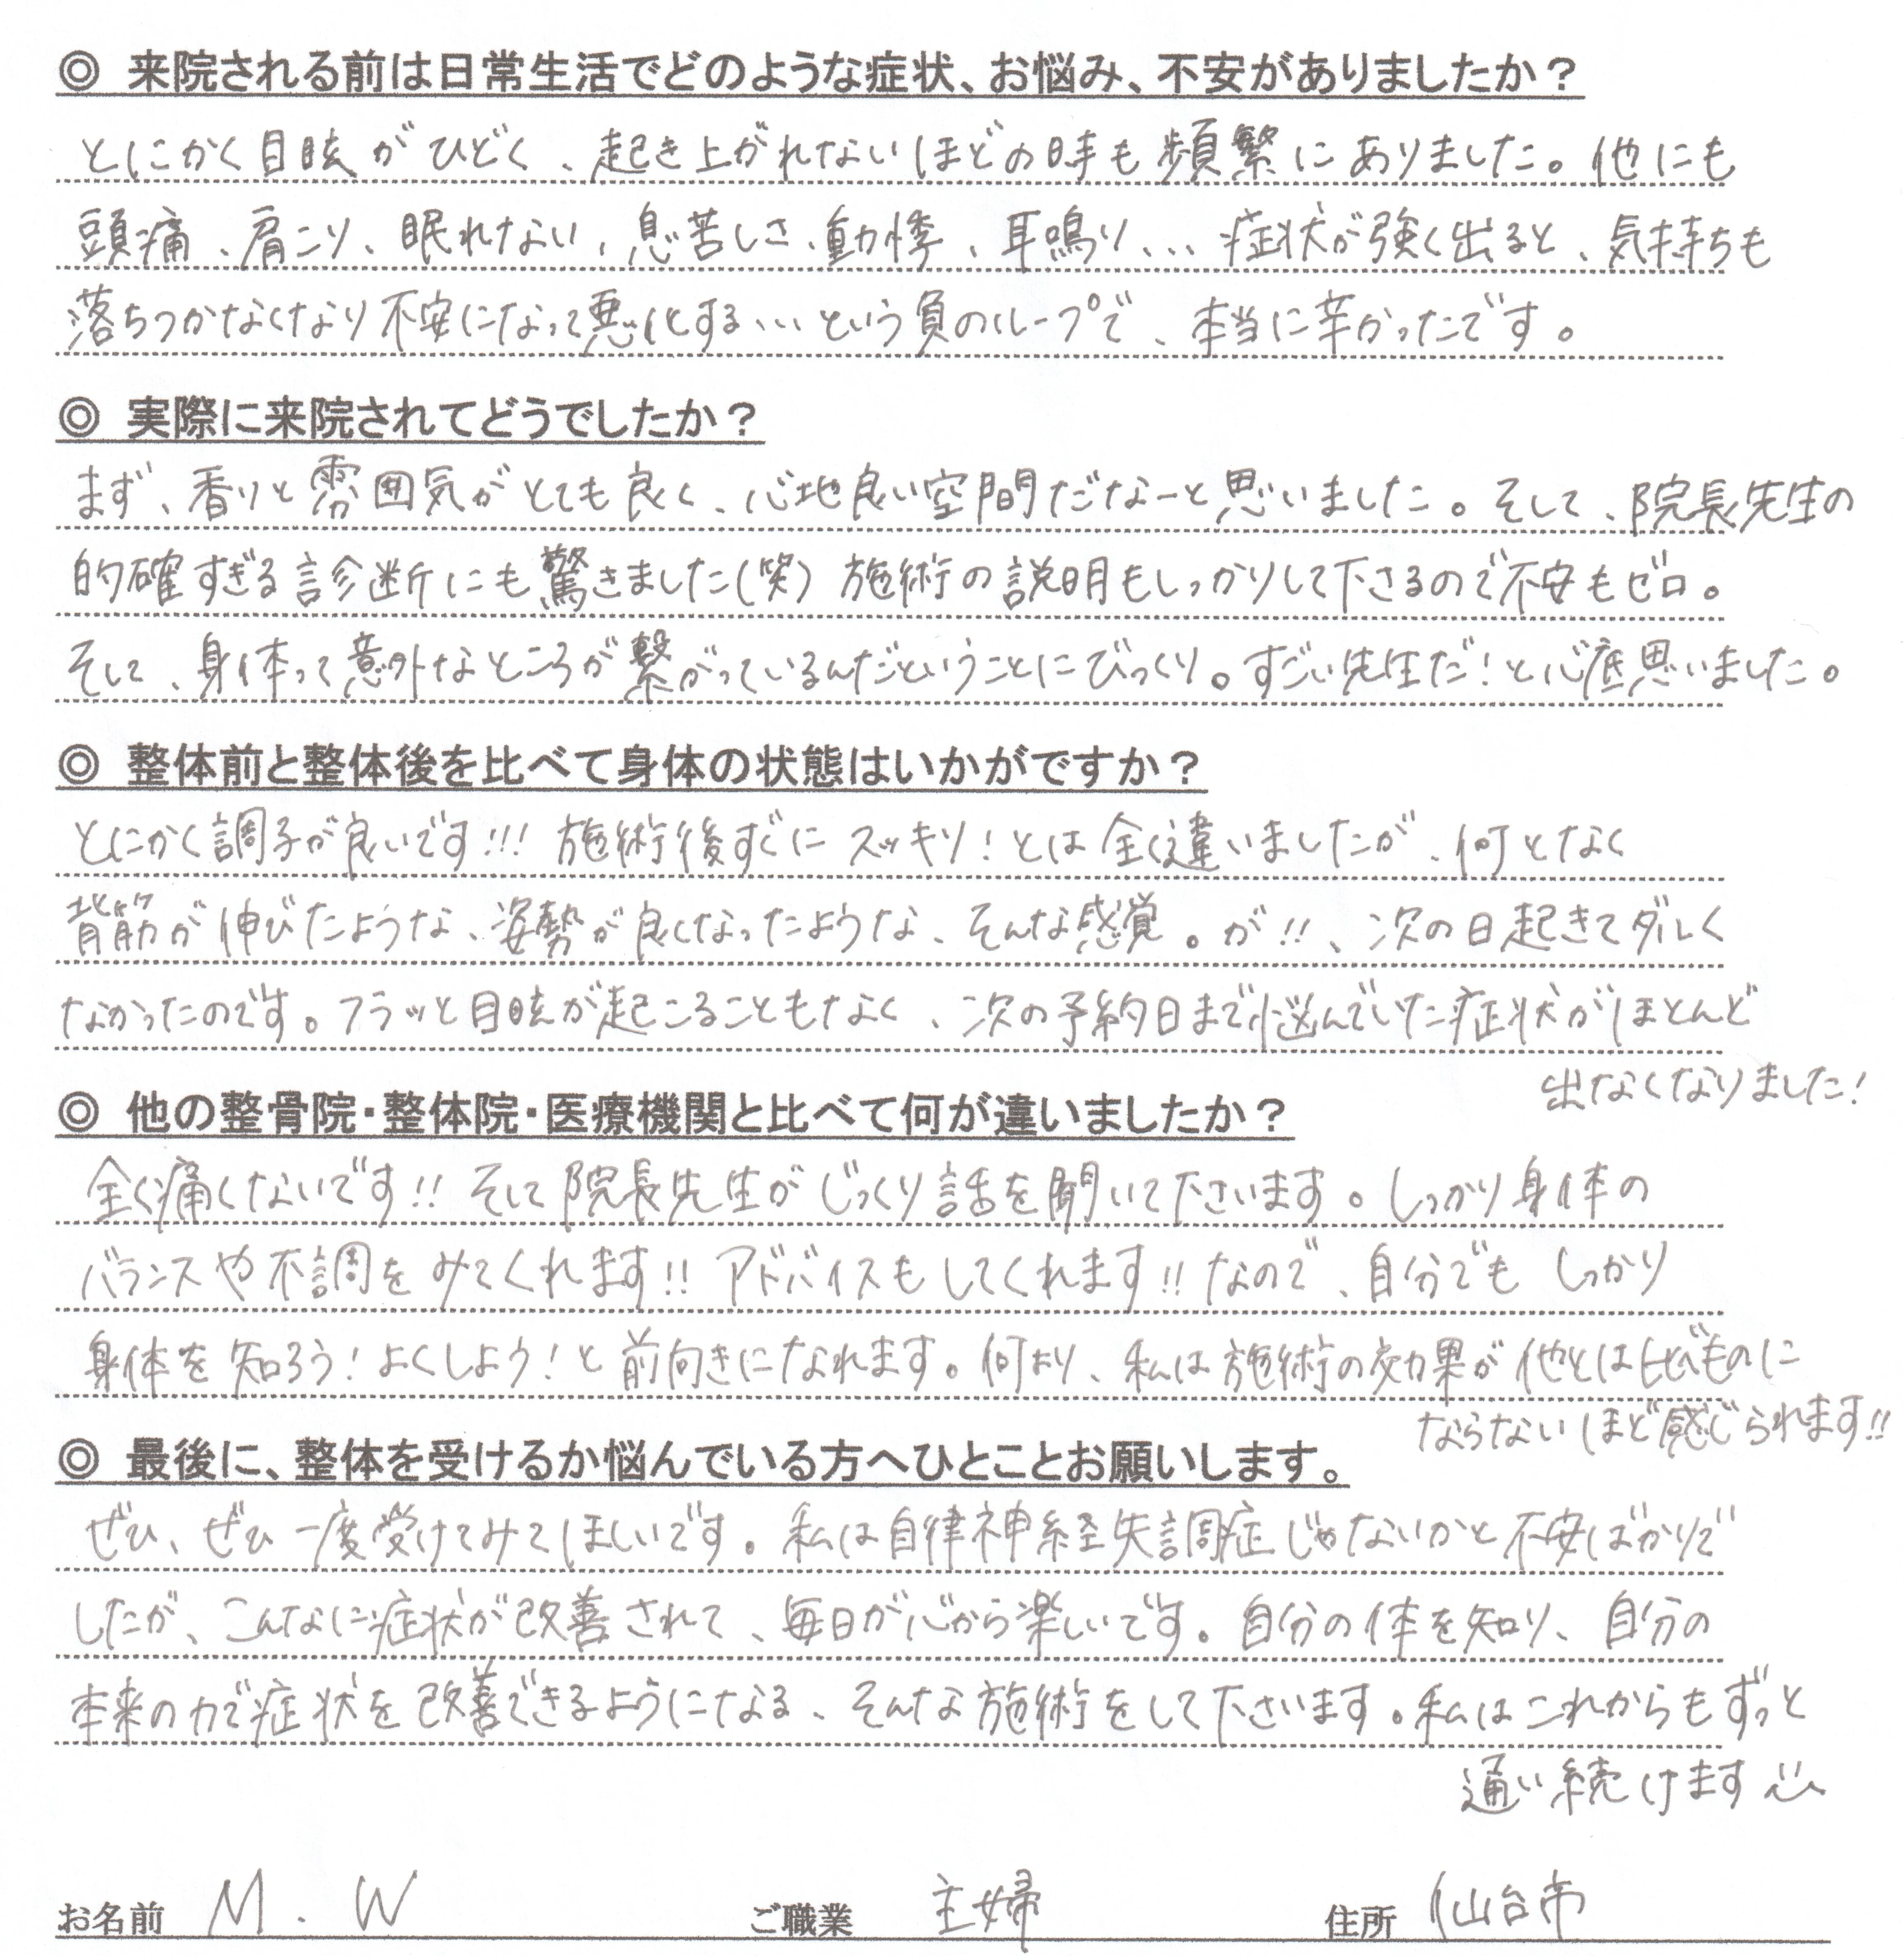 ◎ 来院される前は日常生活でどのような症状、お悩み、不安がありましたか？
とにかく目眩がひどく、起き上がれないほどの時も頻繁にありました。他にも
頭痛、肩こり、眠れない、息苦しさ、動悸、耳鳴り、、、症状が強く出ると、気持ちも
落ちつかなくなり不安になって悪化する、、、という負のループで、本当に辛かったです。
◎ 実際に来院されてどうでしたか？
まず、香りと雰囲気がとても良く、心地良い空間だなーと思いました。そして、院長先生の
的確すぎる診断にも驚きました(笑) 施術の説明もしっかりして下さるので不安もゼロ。
そして、身体って意外なところが繋がっているんだということにびっくり。すごい先生だ！と心底思いました。
◎ 整体前と整体後を比べて身体の状態はいかがですか？
とにかく調子が良いです!!! 施術後すぐにスッキリ！とは全く違いましたが、何となく
背筋が伸びたような、姿勢が良くなったような、そんな感覚。が!!、次の日起きてダルく
なかったのです。フラッと目眩が起こることもなく、次の予約日まで悩んでいた症状がほとんど
出なくなりました！
◎ 他の整骨院・整体院・医療機関と比べて何が違いましたか？
全く痛くないです!! そして院長先生がじっくり話を聞いて下さいます。しっかり身体の
バランスや不調をみてくれます!! アドバイスもしてくれます!! なので、自分でもしっかり
身体を知ろう！よくしよう！と前向きになれます。何より、私は施術の効果が他とは比べものに
ならないほど感じられます!!
◎ 最後に、整体を受けるか悩んでいる方へひとことお願いします。
ぜひ、ぜひ一度受けてみてほしいです。私は自律神経失調症じゃないかと不安ばかりで
したが、こんなに症状が改善されて、毎日が心から楽しいです。自分の体を知り、自分の
本来の力で症状を改善できるようになる、そんな施術をして下さいます。私はこれからもずっと
通い続けます
お名前 M.W ご職業 主婦 住所 仙台市